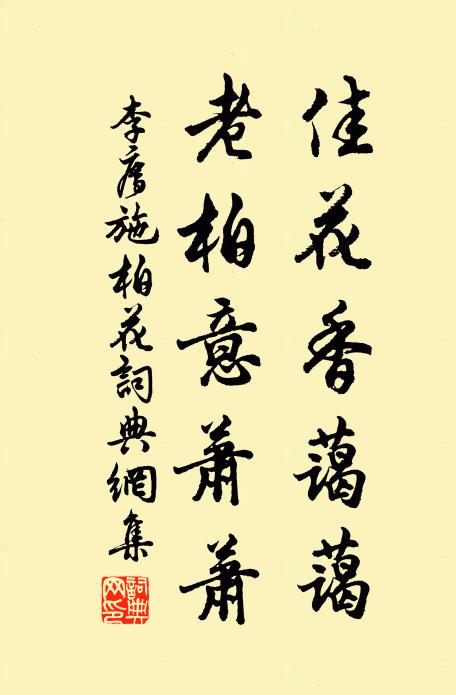 佳花香藹藹
老柏意蕭蕭
李施柏花詞典網集
詞典網印